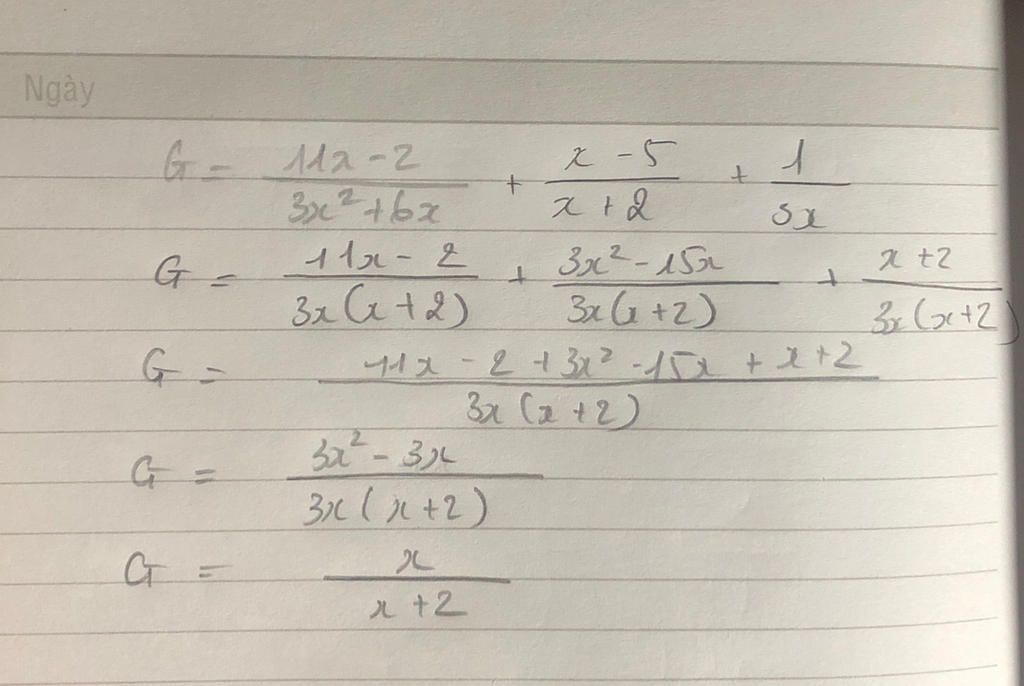 Ngày
G = \frac{11x - 2}{3x^2 + 6x} + \frac{x - 5}{x + 2} + \frac{1}{3x}
G = \frac{11x - 2}{3x(x + 2)} + \frac{3x^2 - 15x}{3x(x + 2)} + \frac{x + 2}{3x(x + 2)}
G = \frac{11x - 2 + 3x^2 - 15x + x + 2}{3x(x + 2)}
G = \frac{3x^2 - 3x}{3x(x + 2)}
G = \frac{x}{x + 2}